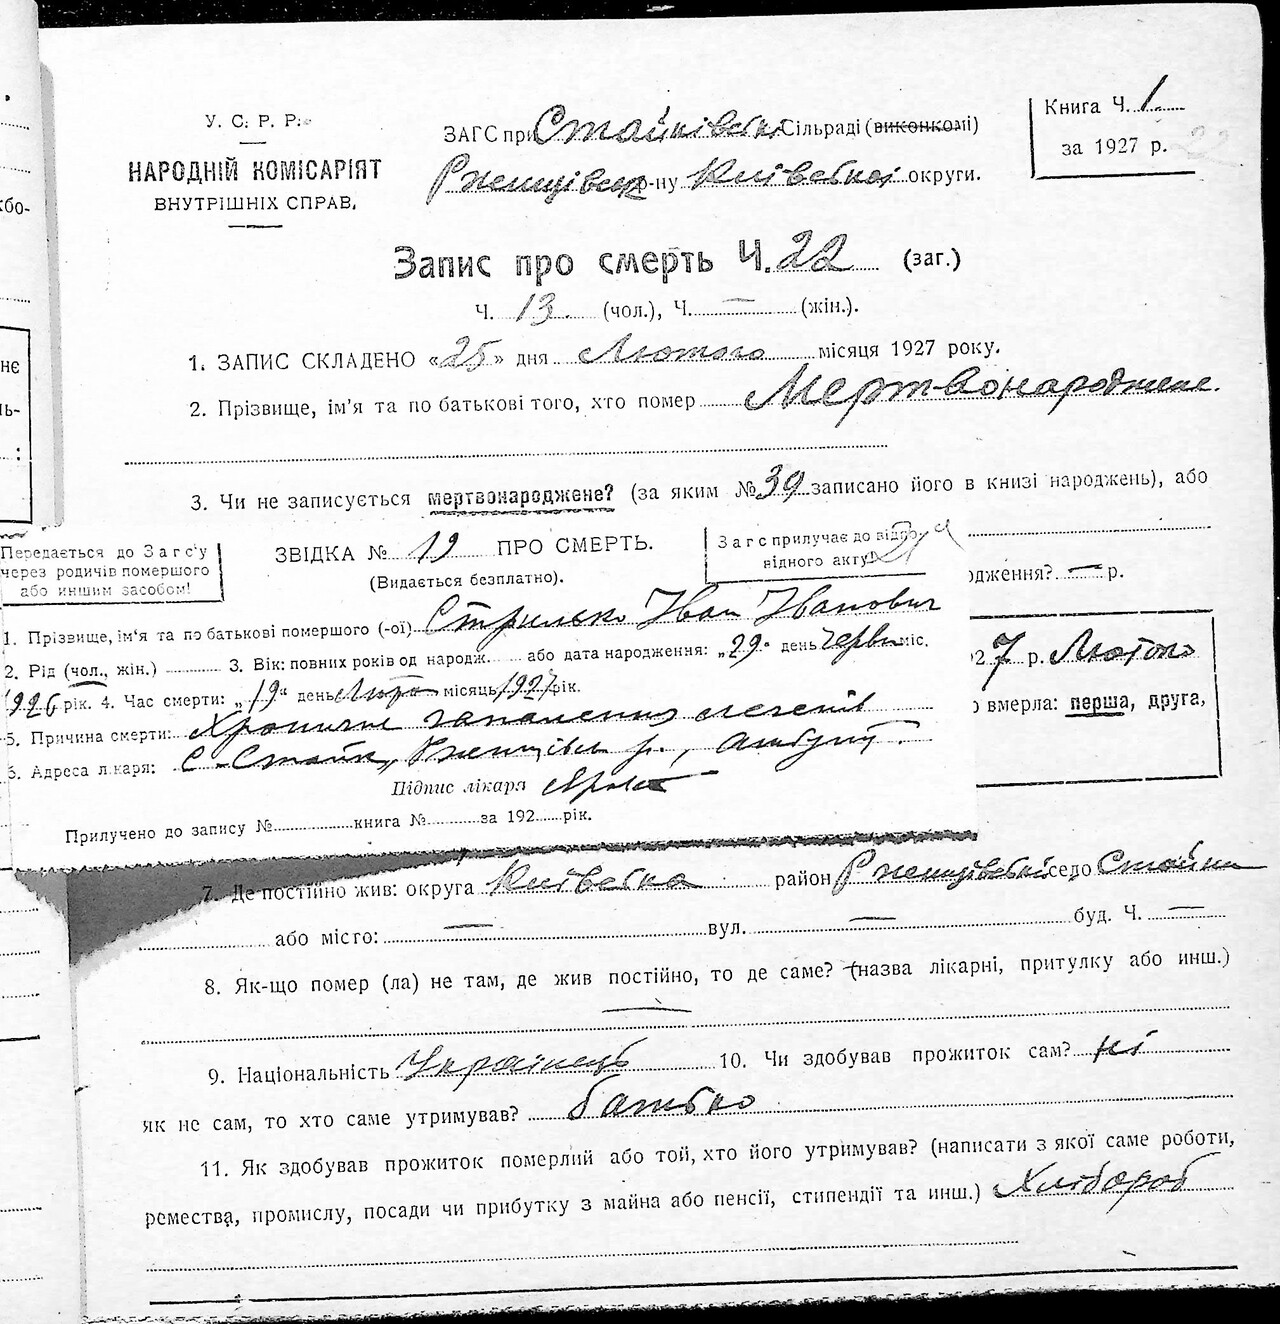 У. С. Р. Р.
НАРОДНІЙ КОМІСАРІЯТ
ВНУТРІШНІХ СПРАВ.
ЗАГС при Стайківській Сільраді (виконкомі)
Ржищівськ. р-ну Київської округи.
Книга Ч. 1.
за 1927 р.
Запис про смерть Ч. 22 (заг.)
Ч. 13. (чол.), Ч. — (жін.).
1. ЗАПИС СКЛАДЕНО «25» дня Лютого місяця 1927 року.
2. Прізвище, ім'я та по батькові того, хто помер Мертвонароджене.
3. Чи не записується мертвонароджене? (за яким № 39 записано його в книзі народжень), або
Передається до Загс'у
через родичів помершого
або иншим засобом!
ЗВІДКА № 19 ПРО СМЕРТЬ.
(Видається безплатно).
Загс прилучає до відпо-
відного акту!
1. Прізвище, ім'я та по батькові помершого (-ої) Стрилько Іван Іванович
2. Рід (чол., жін.) 3. Вік: повних років од народж. або дата народження: „29" день червн міс.
1926 рік. 4. Час смерти: „19" день Люто місяць 1927 рік.
5. Причина смерти: Хронични запалення легенів
6. Адреса лікаря: С-Стайки, Ржищівськ р.,
Підпис лікаря
Прилучено до запису № книга № за 192 рік.
одження? — р.
27 р. Лютого
о вмерла: перша, друга,
7. Де постійно жив: округа Київська район Ржищівський село Стайки
або місто: — вул. — буд. Ч. —
8. Як-що помер (ла) не там, де жив постійно, то де саме? (назва лікарні, притулку або инш.)
—
9. Національність Українець 10. Чи здобував прожиток сам? ні
як не сам, то хто саме утримував? батько
11. Як здобував прожиток померлий або той, хто його утримував? (написати з якої саме роботи,
ремества, промислу, посади чи прибутку з майна або пенсії, стипендії та инш.) Хлібороб